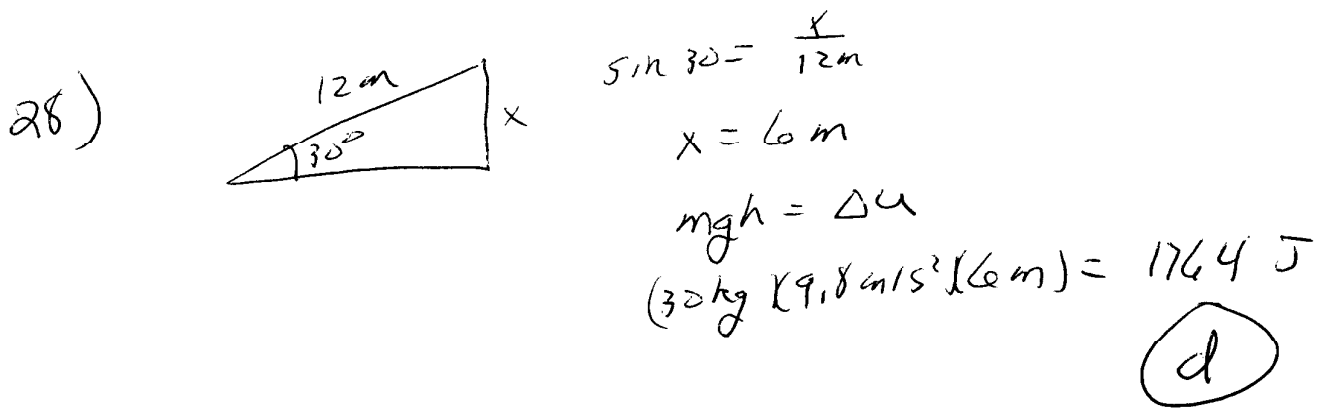 28)
12m
30°
x
sin 30 = x/12m
x = 6m
mgh = Δu
(30kg)(9.8m/s²)(6m) = 1764 J
d